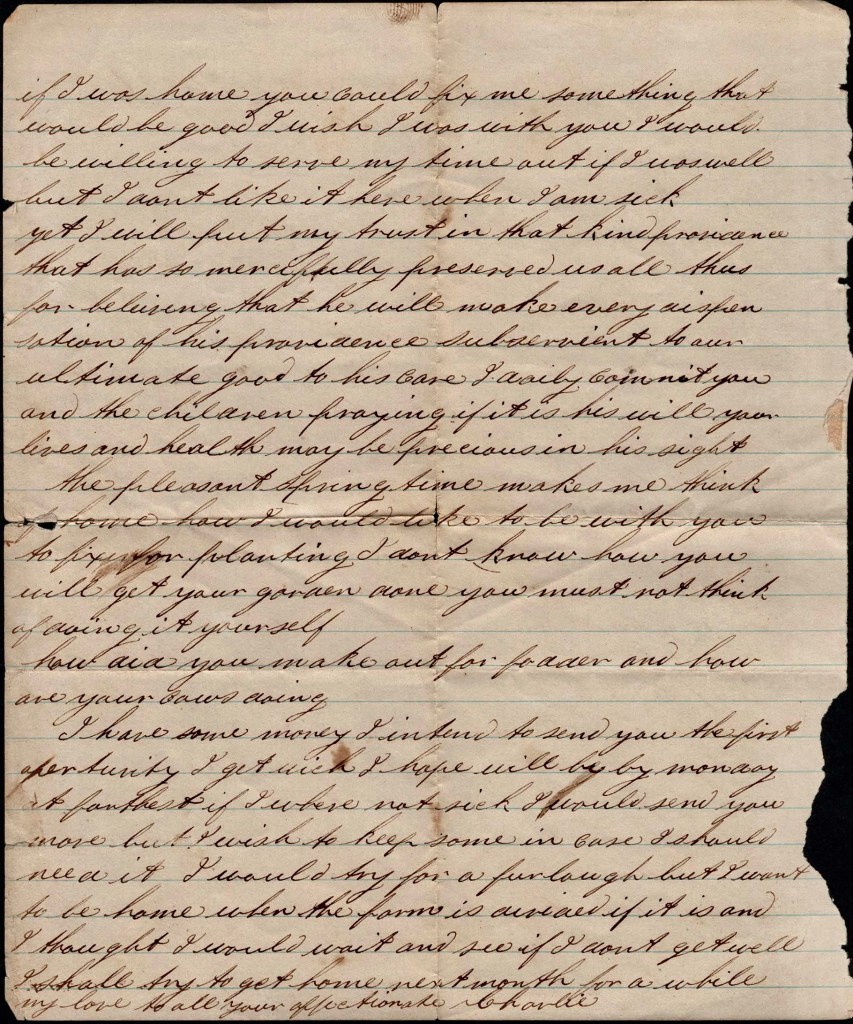 if I was home you could fix me something that
would be good I wish I was with you I would
be willing to serve my time out if I was well
but I dont like it here when I am sick
yet I will put my trust in that kind providence
that has so mercifully preserved us all thus
far beliving that he will make every dispen
sation of his providence subservient to our
ultimate good to his care I daily commit you
and the children praying if it is his will your
lives and health may be precious in his sight
the pleasant spring time makes me think
of home how I would like to be with you
to fix for planting I dont know how you
will get your garden done you must not think
of doing it yourself
how did you make out for fodder and how
are your cows doing
I have some money I intend to send you the first
opertunity I get wich I hope will be by monday
at farthest if I where not sick I would send you
more but I wish to keep some in case I should
need it I would try for a furlough but I want
to be home when the farm is divided if it is and
I thought I would wait and see if I dont get well
I shall try to get home next month for a while
my love to all your affectionate Charlie